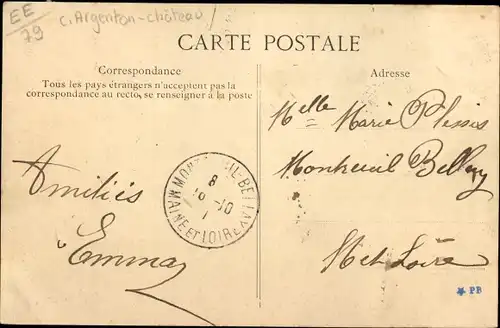 EE
79
c. Argenton-château
CARTE POSTALE
Correspondance
Tous les pays étrangers n'acceptent pas la
correspondance au recto, se renseigner à la poste
Adresse
Melle Marie Plessis
Montreuil Bellay
Met Loire
Amitiés
Emma
8
10
MAINE ET LOIRE
PB